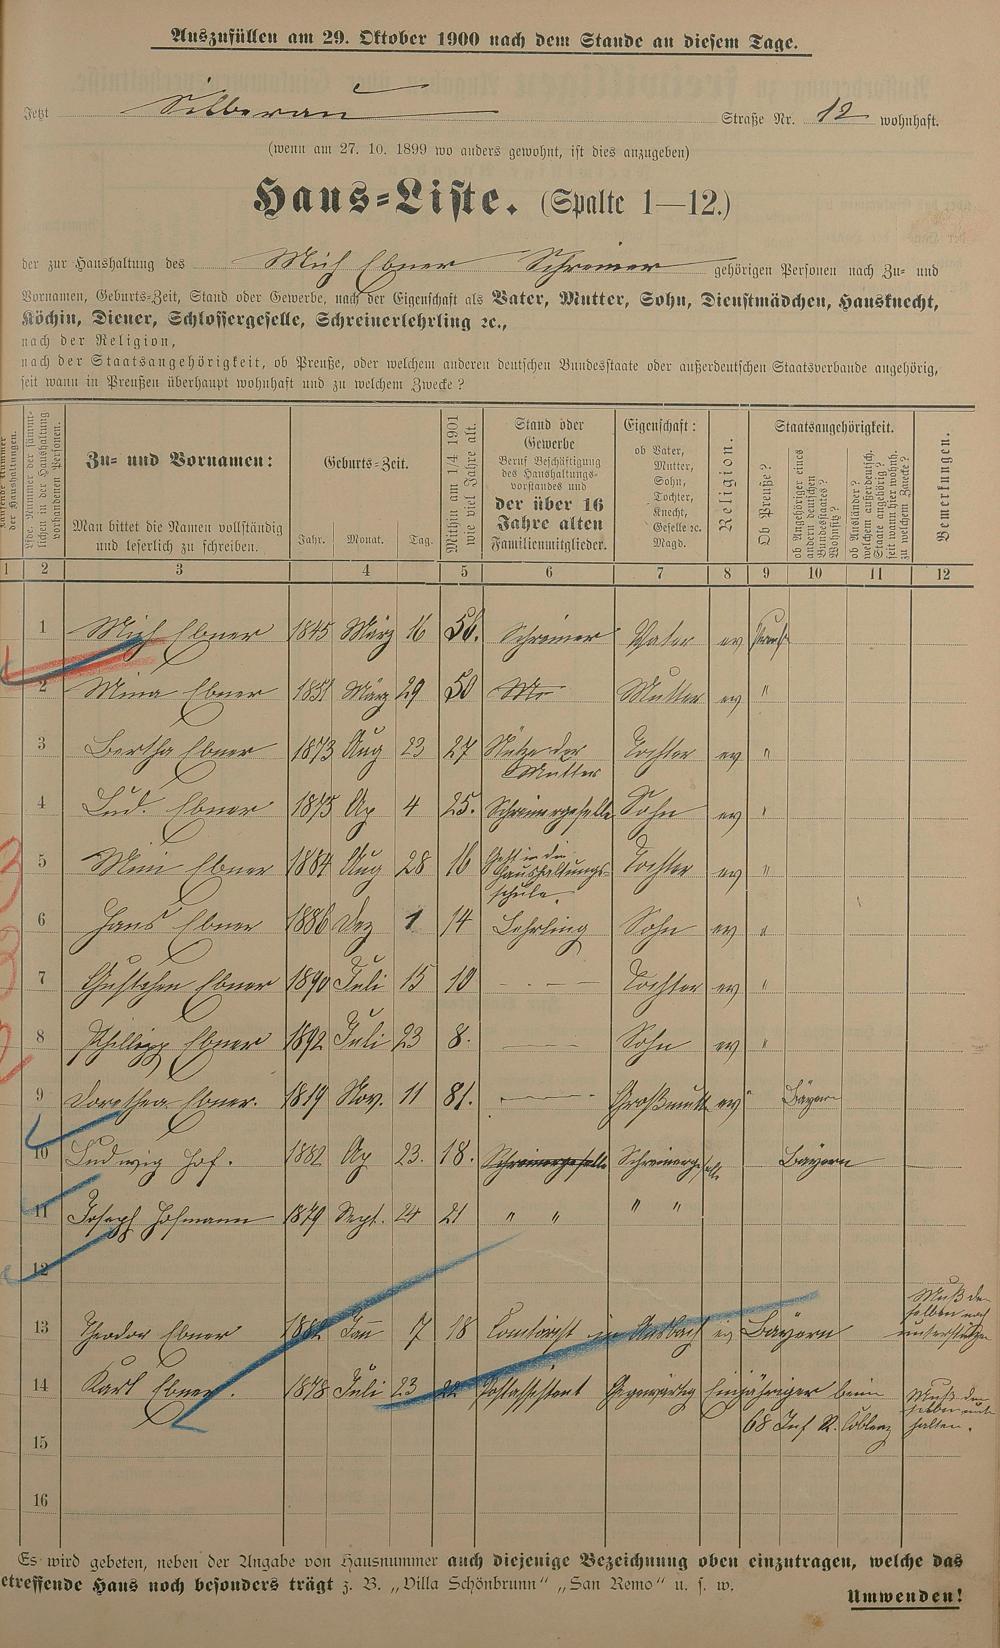 Auszufüllen am 29. Oktober 1900 nach dem Stande an diesem Tage.
Jetzt Silberau Straße Nr. 12 wohnhaft.
(wenn am 27. 10. 1899 wo anders gewohnt, ist dies anzugeben)
Haus-Liste. (Spalte 1—12.)
der zur Haushaltung des Mich Ebner Schreiner gehörigen Personen nach Zu- und
Vornamen, Geburts-Zeit, Stand oder Gewerbe, nach der Eigenschaft als Vater, Mutter, Sohn, Dienstmädchen, Hausknecht,
Köchin, Diener, Schlossergeselle, Schreinerlehrling ꝛc.,
nach der Religion,
nach der Staatsangehörigkeit, ob Preuße, oder welchem anderen deutschen Bundesstaate oder außerdeutschen Staatsverbande angehörig,
seit wann in Preußen überhaupt wohnhaft und zu welchem Zwecke?
Laufende Nummer der Haushaltungen.
Lfde. Nummer der sämmtlichen in der Haushaltung vorhandenen Personen.
Zu- und Vornamen:
Man bittet die Namen vollständig
und leserlich zu schreiben.
Geburts-Zeit.
Jahr. Monat. Tag.
Mithin am 1/4 1901 wie viel Jahre alt.
Stand oder
Gewerbe
Beruf Beschäftigung
des Haushaltungs-
vorstandes und
der über 16
Jahre alten
Familienmitglieder.
Eigenschaft:
ob Vater,
Mutter,
Sohn,
Tochter,
Knecht,
Geselle ꝛc.
Magd.
Religion.
Staatsangehörigkeit.
Ob Preuße?
ob Angehöriger eines andern deutschen Bundesstaates? Wohnsitz?
ob Ausländer? welchem außerdeutsch. Staate angehörig? seit wann hier wohnh. zu welchem Zwecke?
Bemerkungen.
1 2 3 4 5 6 7 8 9 10 11 12
1 Mich Ebner 1845 März 16 56. Schreiner Vater ev
2 Mina Ebner 1851 März 29 50 Mutter ev "
3 Bertha Ebner 1873 Aug 23 27 Stütze der Mutter Tochter ev "
4 Lud. Ebner 1875 Ap 4 25. Schreinergeselle Sohn ev "
5 Mini Ebner 1884 Aug 28 16 Geht in die Haushaltungsschule. Tochter ev "
6 Hans Ebner 1886 Dez 1 14 Lehrling Sohn ev "
7 Gustchen Ebner 1890 Juli 15 10 — - — Tochter ev "
8 Phillipp Ebner 1892 Juli 23 8. — Sohn ev "
9 Dorothea Ebner. 1819 Nov. 11 81. — Großmutt ev Bayern
10 Ludwig Hof. 1882 Ap 23. 18. Schreinergeselle Schreinergeselle Bayern
11 Joseph Hofmann 1879 Sept. 24 21 " " " "
12
13 Theodor Ebner 1882 Jan 7 18 in Ansbach Bayern Muß den
selben noch
unterstützen
14 Karl Ebner. 1878 Juli 23 22 Postassistent Gegenwärtig Einjähriger beim Muß den
68 Inf R. Coblenz selben unter
halten.
15
16
Es wird gebeten, neben der Angabe von Hausnummer auch diejenige Bezeichnung oben einzutragen, welche das
etreffende Haus noch besonders trägt z. B. „Villa Schönbrunn“ „San Remo“ u. s. w.
Umwenden!